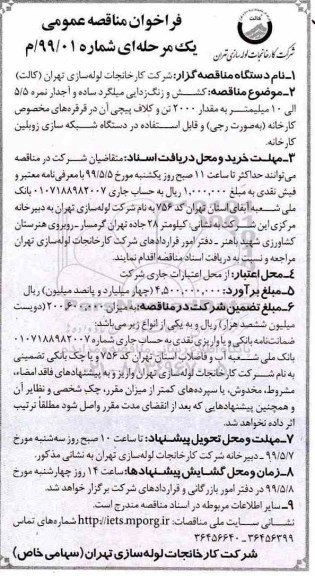 کالت
شرکت کارخانجات لوله‌سازی تهران
فراخوان مناقصه عمومی
یک مرحله‌ای شماره ۹۹/۰۱/م
۱-نام دستگاه مناقصه گزار: شرکت کارخانجات لوله‌سازی تهران (کالت)
۲-موضوع مناقصه: کشش و زنگ‌زدایی میلگرد ساده و آجدار نمره ۵/۵
الی ۱۰ میلیمتر به مقدار ۲۰۰۰ تن و کلاف پیچی آن در قرقره‌های مخصوص
کارخانه (به‌صورت رجی) و قابل استفاده در دستگاه شبکه سازی زوبلین
کارخانه.
۳-مهلت خرید و محل دریافت اسناد: متقاضیان شرکت در مناقصه
می‌توانند حداکثر تا ساعت ۱۱ صبح روز یکشنبه مورخ ۹۹/۵/۵ با معرفی‌نامه معتبر و
فیش نقدی به مبلغ ۱,۰۰۰,۰۰۰ ریال به حساب جاری ۰۱۰۷۱۱۸۸۹۸۲۰۰۷ بانک
ملی شعبه آبفای استان تهران کد ۷۵۶ به نام شرکت لوله‌سازی تهران به دبیرخانه
مرکزی این شرکت به نشانی: کیلومتر ۲۸ جاده تهران گرمسار ـ روبروی هنرستان
کشاورزی شهید باهنر ـ دفتر امور قراردادهای شرکت کارخانجات لوله‌سازی تهران
مراجعه و نسبت به دریافت اسناد مناقصه اقدام نمایند.
۴-محل اعتبار: از محل اعتبارات جاری شرکت
۵-مبلغ برآورد: ۴,۵۰۰,۰۰۰,۰۰۰ (چهار میلیارد و پانصد میلیون) ریال
۶-مبلغ تضمین شرکت در مناقصه: به میزان ۲۰۰,۶۰۰,۰۰۰ (دویست
میلیون ششصد هزار) ریال و به یکی از انواع زیر می‌باشد:
ضمانت‌نامه بانکی و یا واریزی نقدی به حساب جاری شماره ۰۱۰۷۱۱۸۸۹۸۲۰۰۷
بانک ملی شعبه آب و فاضلاب استان تهران کد ۷۵۶ و یا چک بانکی تضمینی
به نام شرکت کارخانجات لوله‌سازی تهران واریز و به پیشنهادهای فاقد امضاء،
مشروط، مخدوش، با سپرده‌های کمتر از میزان مقرر، چک شخصی و نظایر آن
و همچنین پیشنهادهایی که بعد از انقضای مدت مقرر واصل شود مطلقاً ترتیب
اثر داده نخواهد شد.
۷-مهلت و محل تحویل پیشنهاد: تا ساعت ۱۰ صبح روز سه‌شنبه مورخ
۹۹/۵/۷ ـ دبیرخانه شرکت کارخانجات لوله‌سازی تهران به نشانی مذکور.
۸-زمان و محل گشایش پیشنهادها: ساعت ۱۴ روز چهارشنبه مورخ
۹۹/۵/۸ در دفتر امور بازرگانی و قراردادهای شرکت برگزار خواهد شد.
۹-سایر اطلاعات مربوطه در اسناد مناقصه مندرج است.
نشانی سایت ملی مناقصات: http://iets.mporg.ir شماره‌های تماس
۳۶۴۵۶۳۹۹ ـ ۳۶۴۵۶۶۴۰
شرکت کارخانجات لوله‌سازی تهران (سهامی خاص)